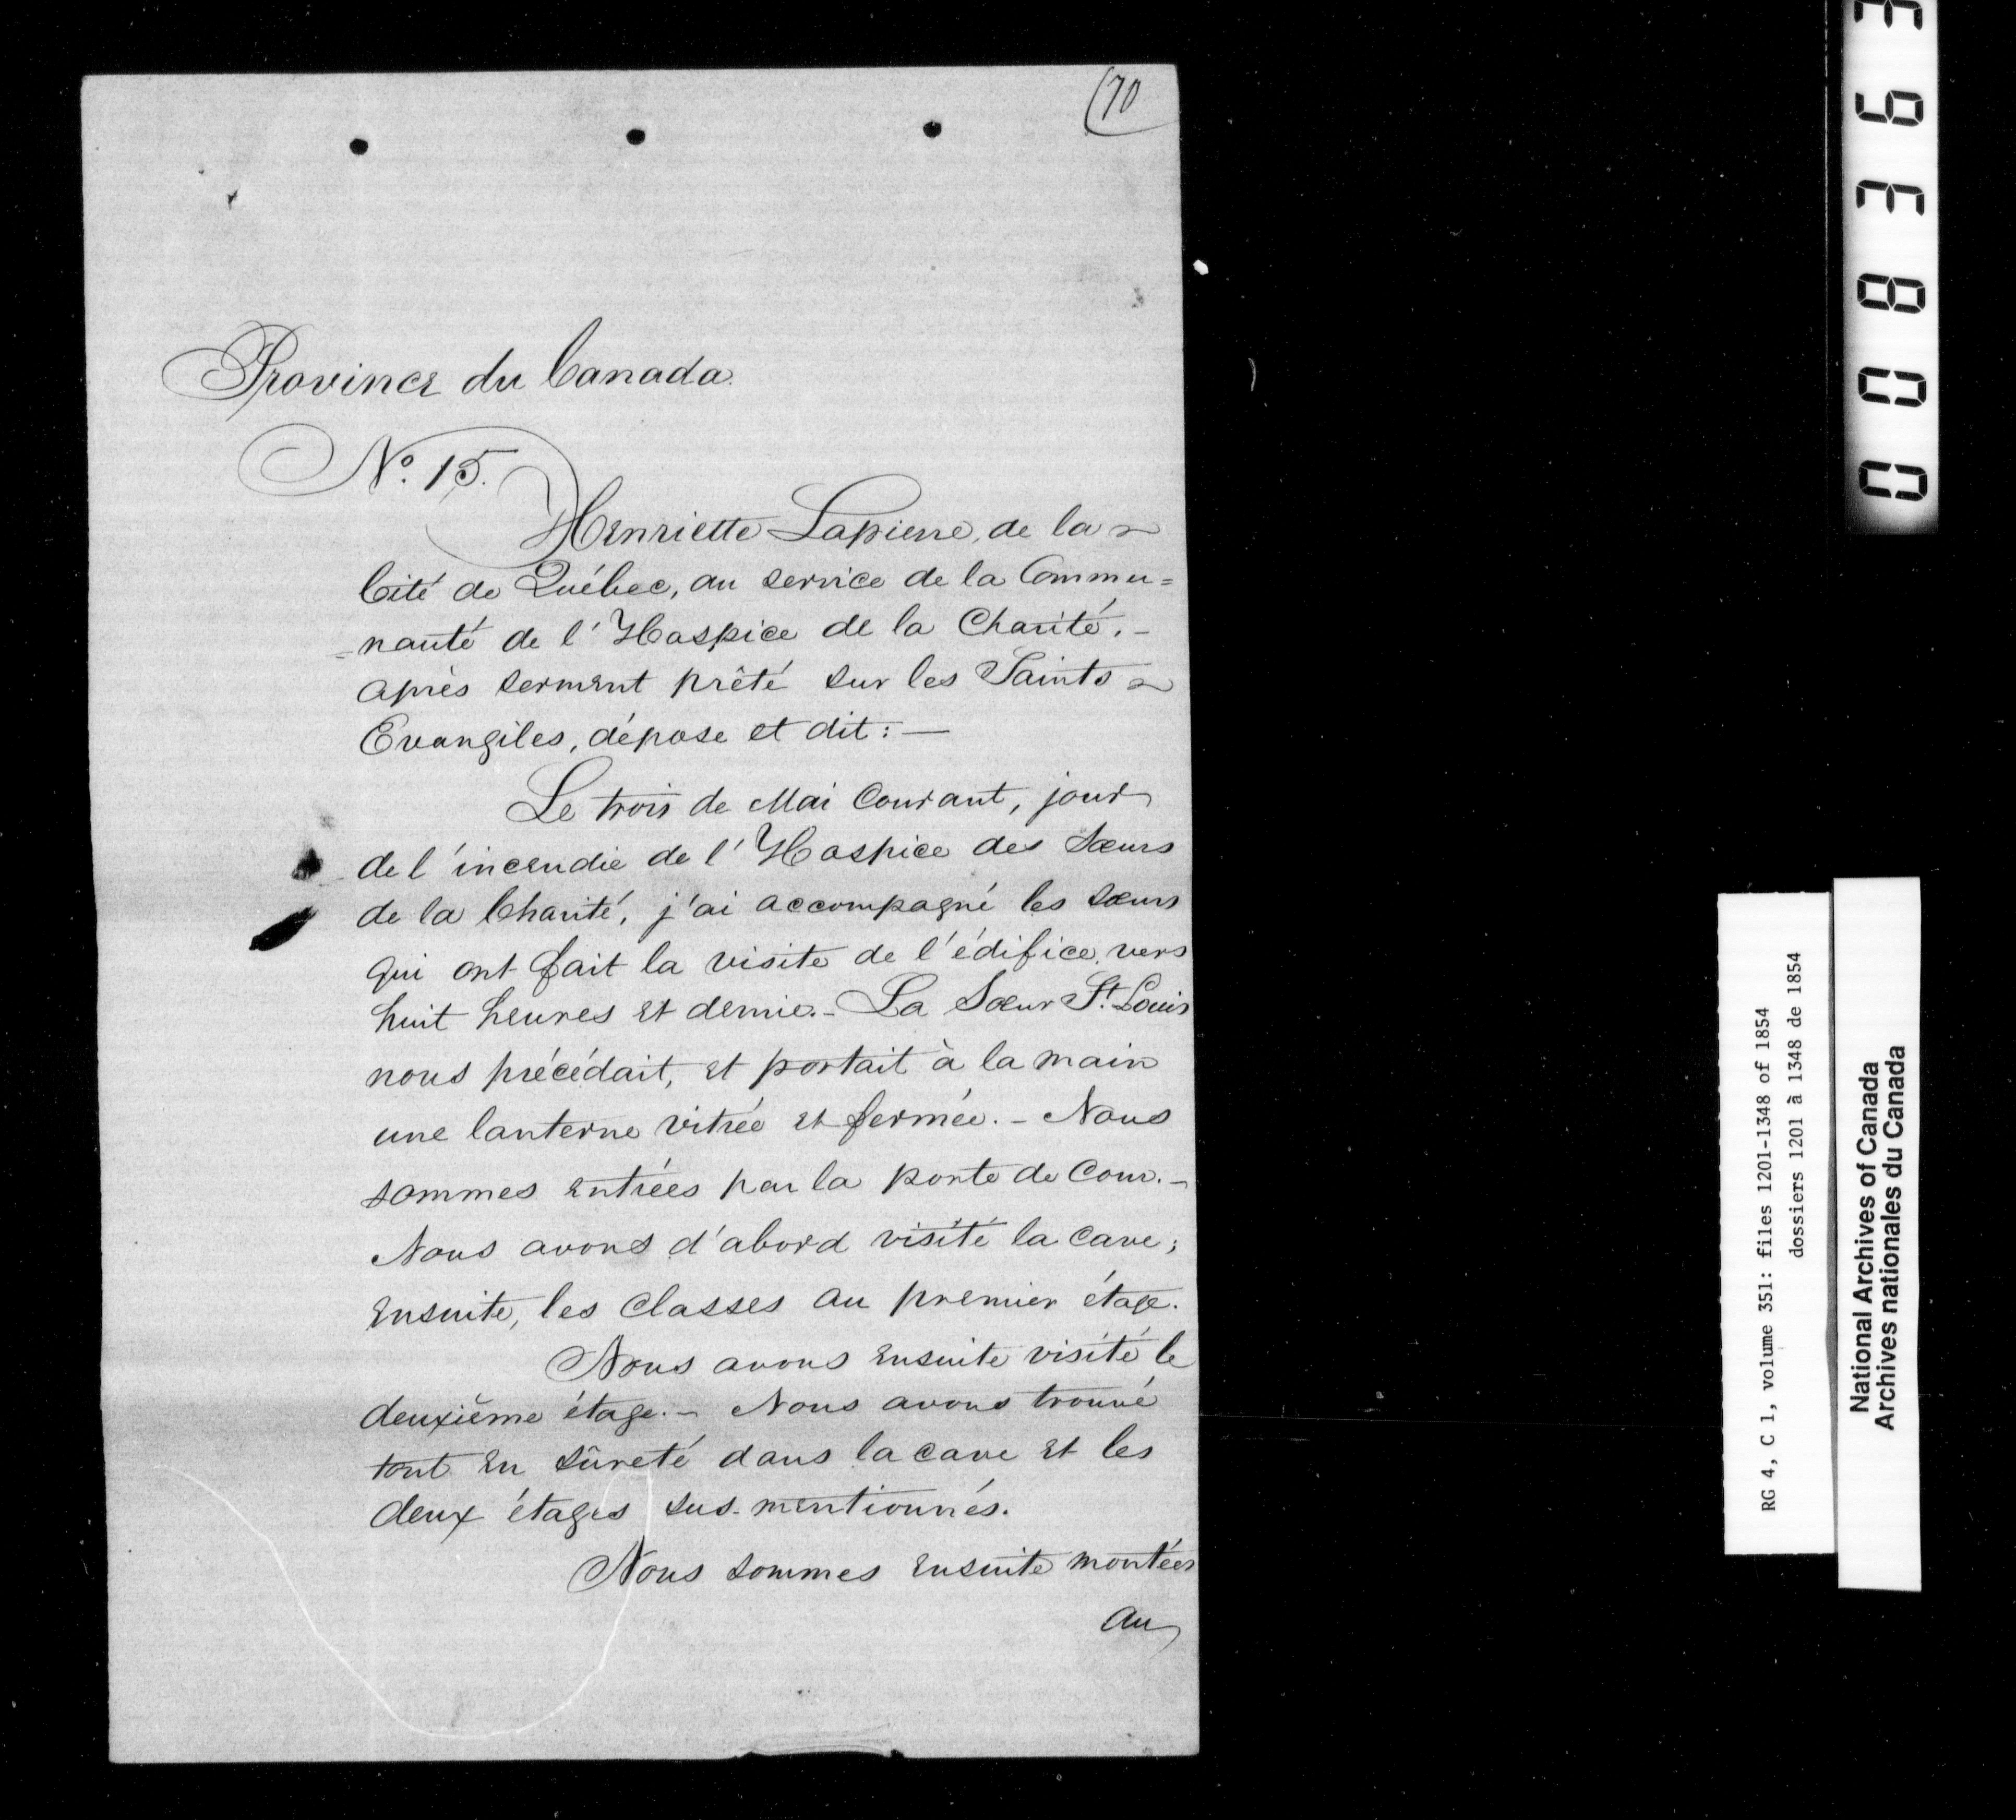 (70
Province du Canada.
No. 15.
Henriette Lapierre, de la
Cité de Québec, au service de la Commu=
=nauté de l'Hospice de la Charité. -
après serment prêté sur les Saints
Evangiles, dépose et dit: —
Le trois de Mai Courant, jour
de l'incendie de l'Hospice des Sœurs
de la Charité, j'ai accompagné les sœurs
qui ont fait la visite de l'édifice, vers
huit heures et demie. - La Sœur St. Louis
nous précédait, et portait à la main
une lanterne vitrée et fermée. - Nous
sommes entrées par la porte de Cour. -
Nous avons d'abord visité la cave;
ensuite, les classes au premier étage.
Nous avons ensuite visité le
deuxième étage. - Nous avons trouvé
tout en sûreté dans la cave et les
deux étages sus-mentionnés.
Nous sommes ensuite montées
au
008363
RG 4, C 1, volume 351: files 1201-1348 of 1854
dossiers 1201 à 1348 de 1854
National Archives of Canada
Archives nationales du Canada